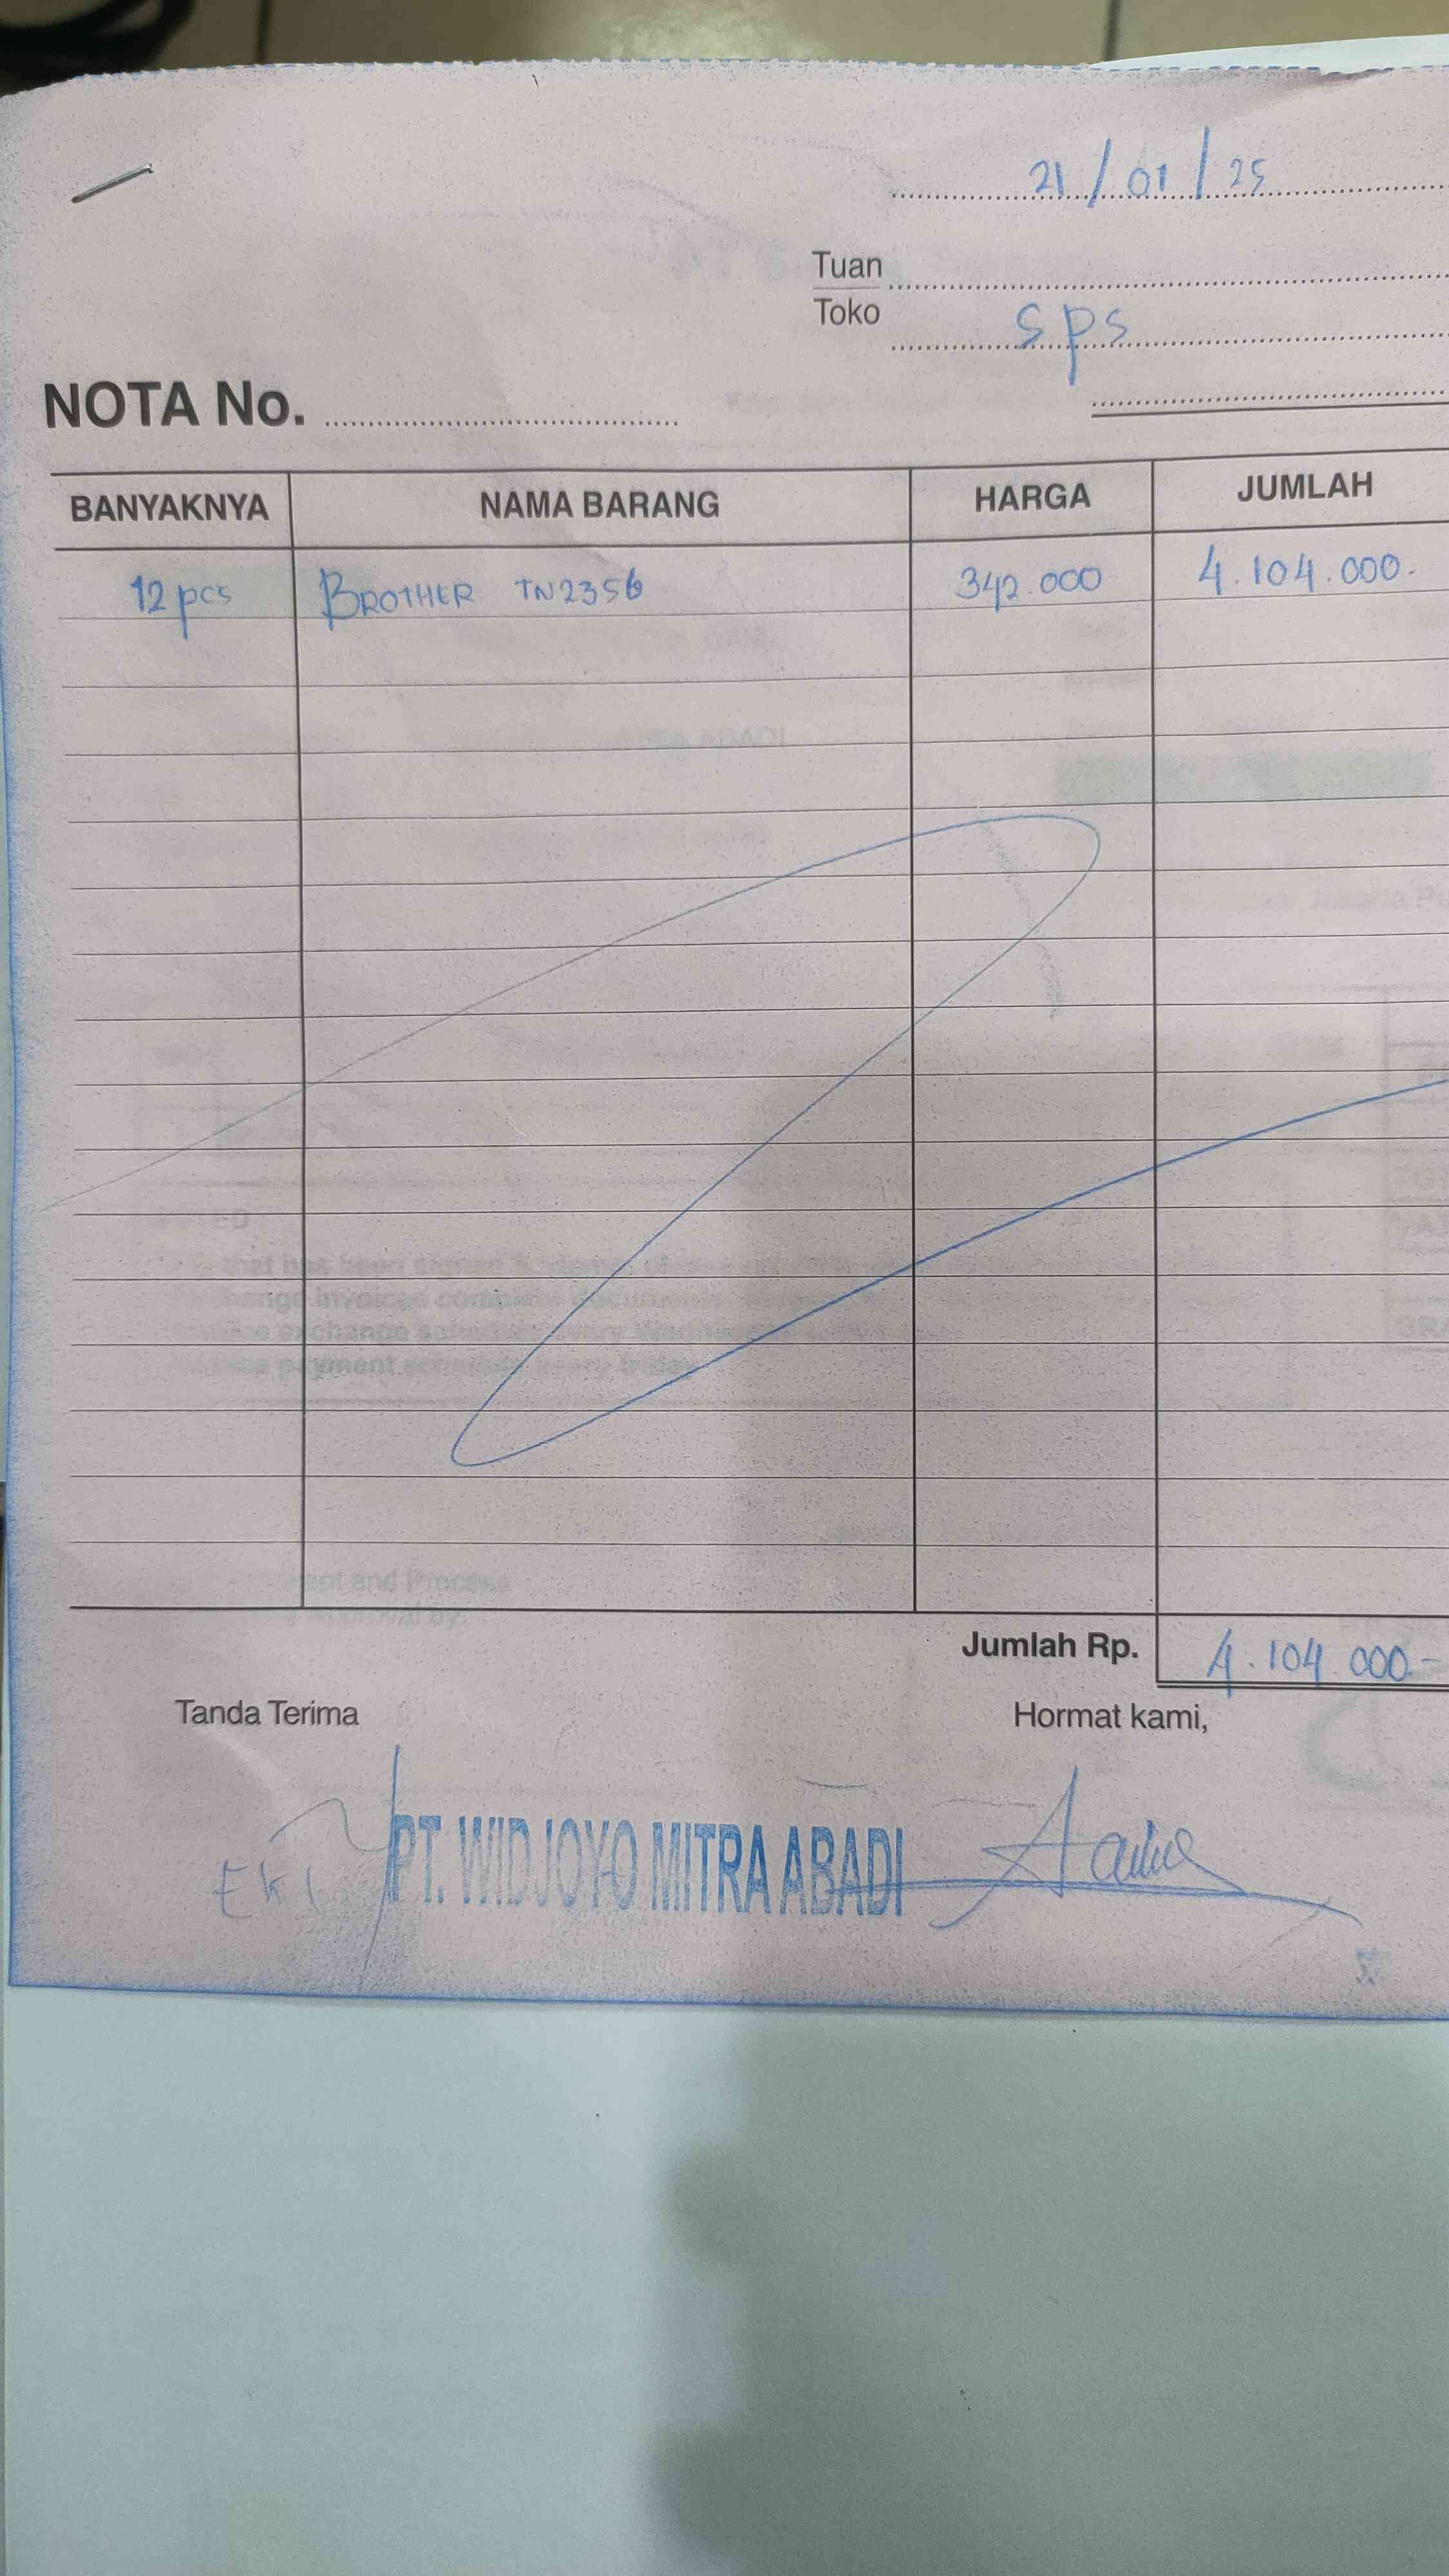 21/01/25
Tuan
Toko
sps
NOTA No.
BANYAKNYA NAMA BARANG HARGA JUMLAH
12 pcs BROTHER TN2356 342.000 4.104.000.-
Jumlah Rp. 4.104.000.-
Tanda Terima Hormat kami,
EKI PT. WIDJOYO MITRA ABADI